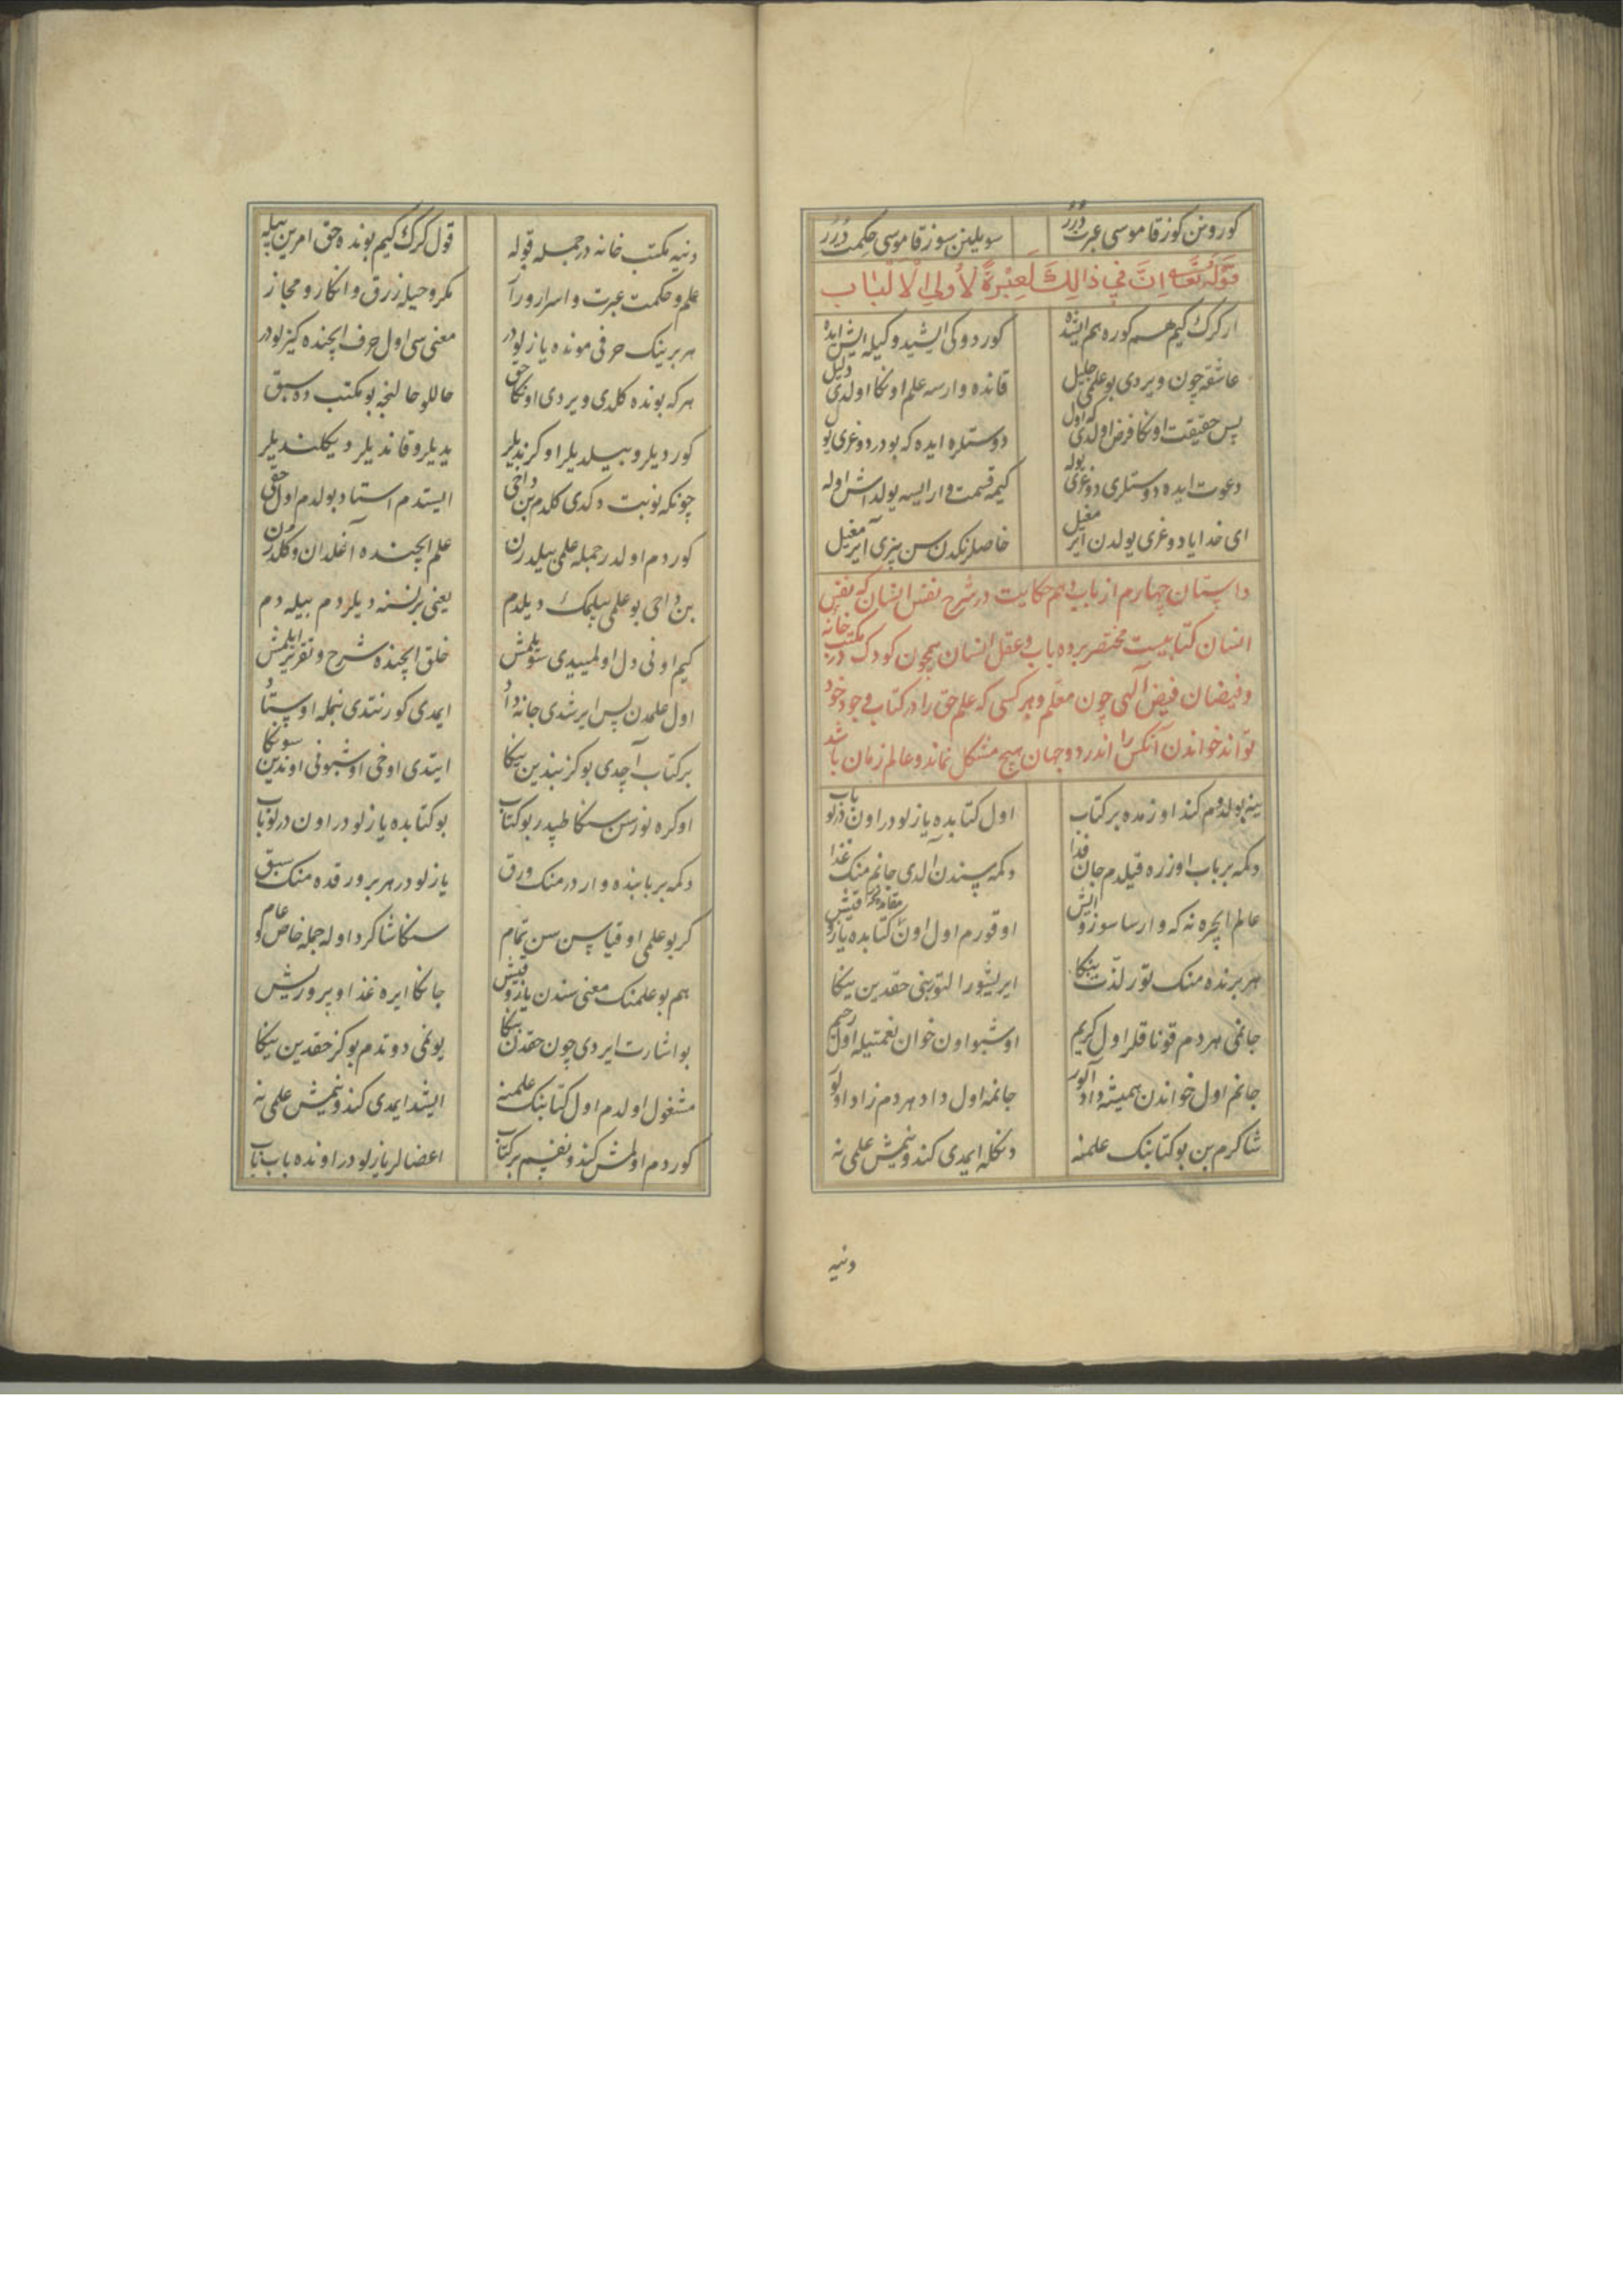 كورونن كوز قاموسى عبرت درر سويلينن سوز قاموسى حكمت درر
قوله تعالى اِنَّ فِي ذالِكَ لَعِبْرَةً لاُولِي الْالْبٰاب
ار كرك كيم هم كوره هم ايشده كوردوكى ايشيدوكيله ايش ايده
عاشقه چون ويردى بو علمى جليل قانده وارسه علم اونكا اولدى دليل
پس حقيقت اونكا فرض اولدى كه اول دوستلره ايده كه بودر دوغرى يول
دعوت ايده دوستلرى دوغرى يوله كيمه قسمت وار ايسه يولداش اوله
اى خدايا دوغرى يولدن ايرمغيل خاصلرنكدن سن بزى آيرمغيل
داستان چهارم از باب دهم حكايت در شرح نفس انسان كه نفس
انسان كتابيست مختصر بر ده باب و عقل انسان همچون كودك در مكتب خانه
و فيضان فيض الهى چون معلم و هر كسى كه علم حق را در كتاب وجود خود
تواند خواندن آنكس را اندر دو جهان هيچ مشكل نماند و عالم زمان باشد
ينه بولدوم كند اوزمده بر كتاب اول كتابده يازلودر اون درلو باب
دكمه بر باب اوزره قيلدم جان فدا دكمه سندن آلدى جانم منك غذا
عالم ايچره نه كه وارسا سوز و ايش اوقورم اول اون كتابده
هر برنده منك تورلو لذت بنكا ايريشور التوبنى حقدين بنكا
جانمى هر دم قوناقلر اول كريم اوشبو اون خوان نعمتيله اول رحيم
جانم اول خواندن هميشه داد آلور جانمه اول داد هر دم زاد اولور
شاكرم بن بو كتابنك علمنه دنكله ايمدى كندونمش علمى نه
دنيه
دنيه مكتب خانه در جمله قوله قول كرك كيم بونده حق امرين بيله
علم و حكمت عبرت و اسرار و راز مكر و حيله زرق و انكار و مجاز
هر برينك حرفى مونده يازلودر معنى سى اول حرف ايچنده كيزلودر
هر كه بونده كلدى ويردى اونكا حق حاللو حالنجه بو مكتب ده سبق
كورديلر و بيلديلر اوكرنديلر يديلر و قانديلر ديكلنديلر
چونكه نوبت دكدى كلدم بن داخى ايستدم استاد بولدم اول حقى
كوردم اولدر جمله علمى بيلدرن علم ايچنده آغلدان و كلدرن
بن داحى بو علمى بيلمك ديلدم يعنى بر نسنه ديلردم بيله دم
كيم اونى دل اولميدى سويلمش خلق ايچنده شرح و تقرير ايلمش
اول علمدن پس ايرشدى جانه داد ايمدى كورنتدى بنمله اوستاد
بر كتاب آچدى بو كز بندين بنكا ايتدى اوخى اوشبونى اوندين سونكا
اوكره نورسن سنكا طپدر بو كتاب بو كتابده يازلودر اون درلو باب
دكمه بر بابنده واردر منك ورق يازلودر هر بر ورقده منك سبق
كر بو علمى اوقياسن سن تمام سنكا شاكرد اوله جمله خاص كو عام
هم بو علمنك معنى سندن ياز و قيش جانكا ايره غذا و پرورش
بو اشارت ايردى چون حقدن بنكا يونمى دوتدم بو كز حقدين ينكا
مشغول اولدم اول كتابنك علمنه ايشد ايمدى كندونمش علمى نه
كوردم اولمش كندو نفسم بر كتاب اعضالر يازلودر اونده باب باب